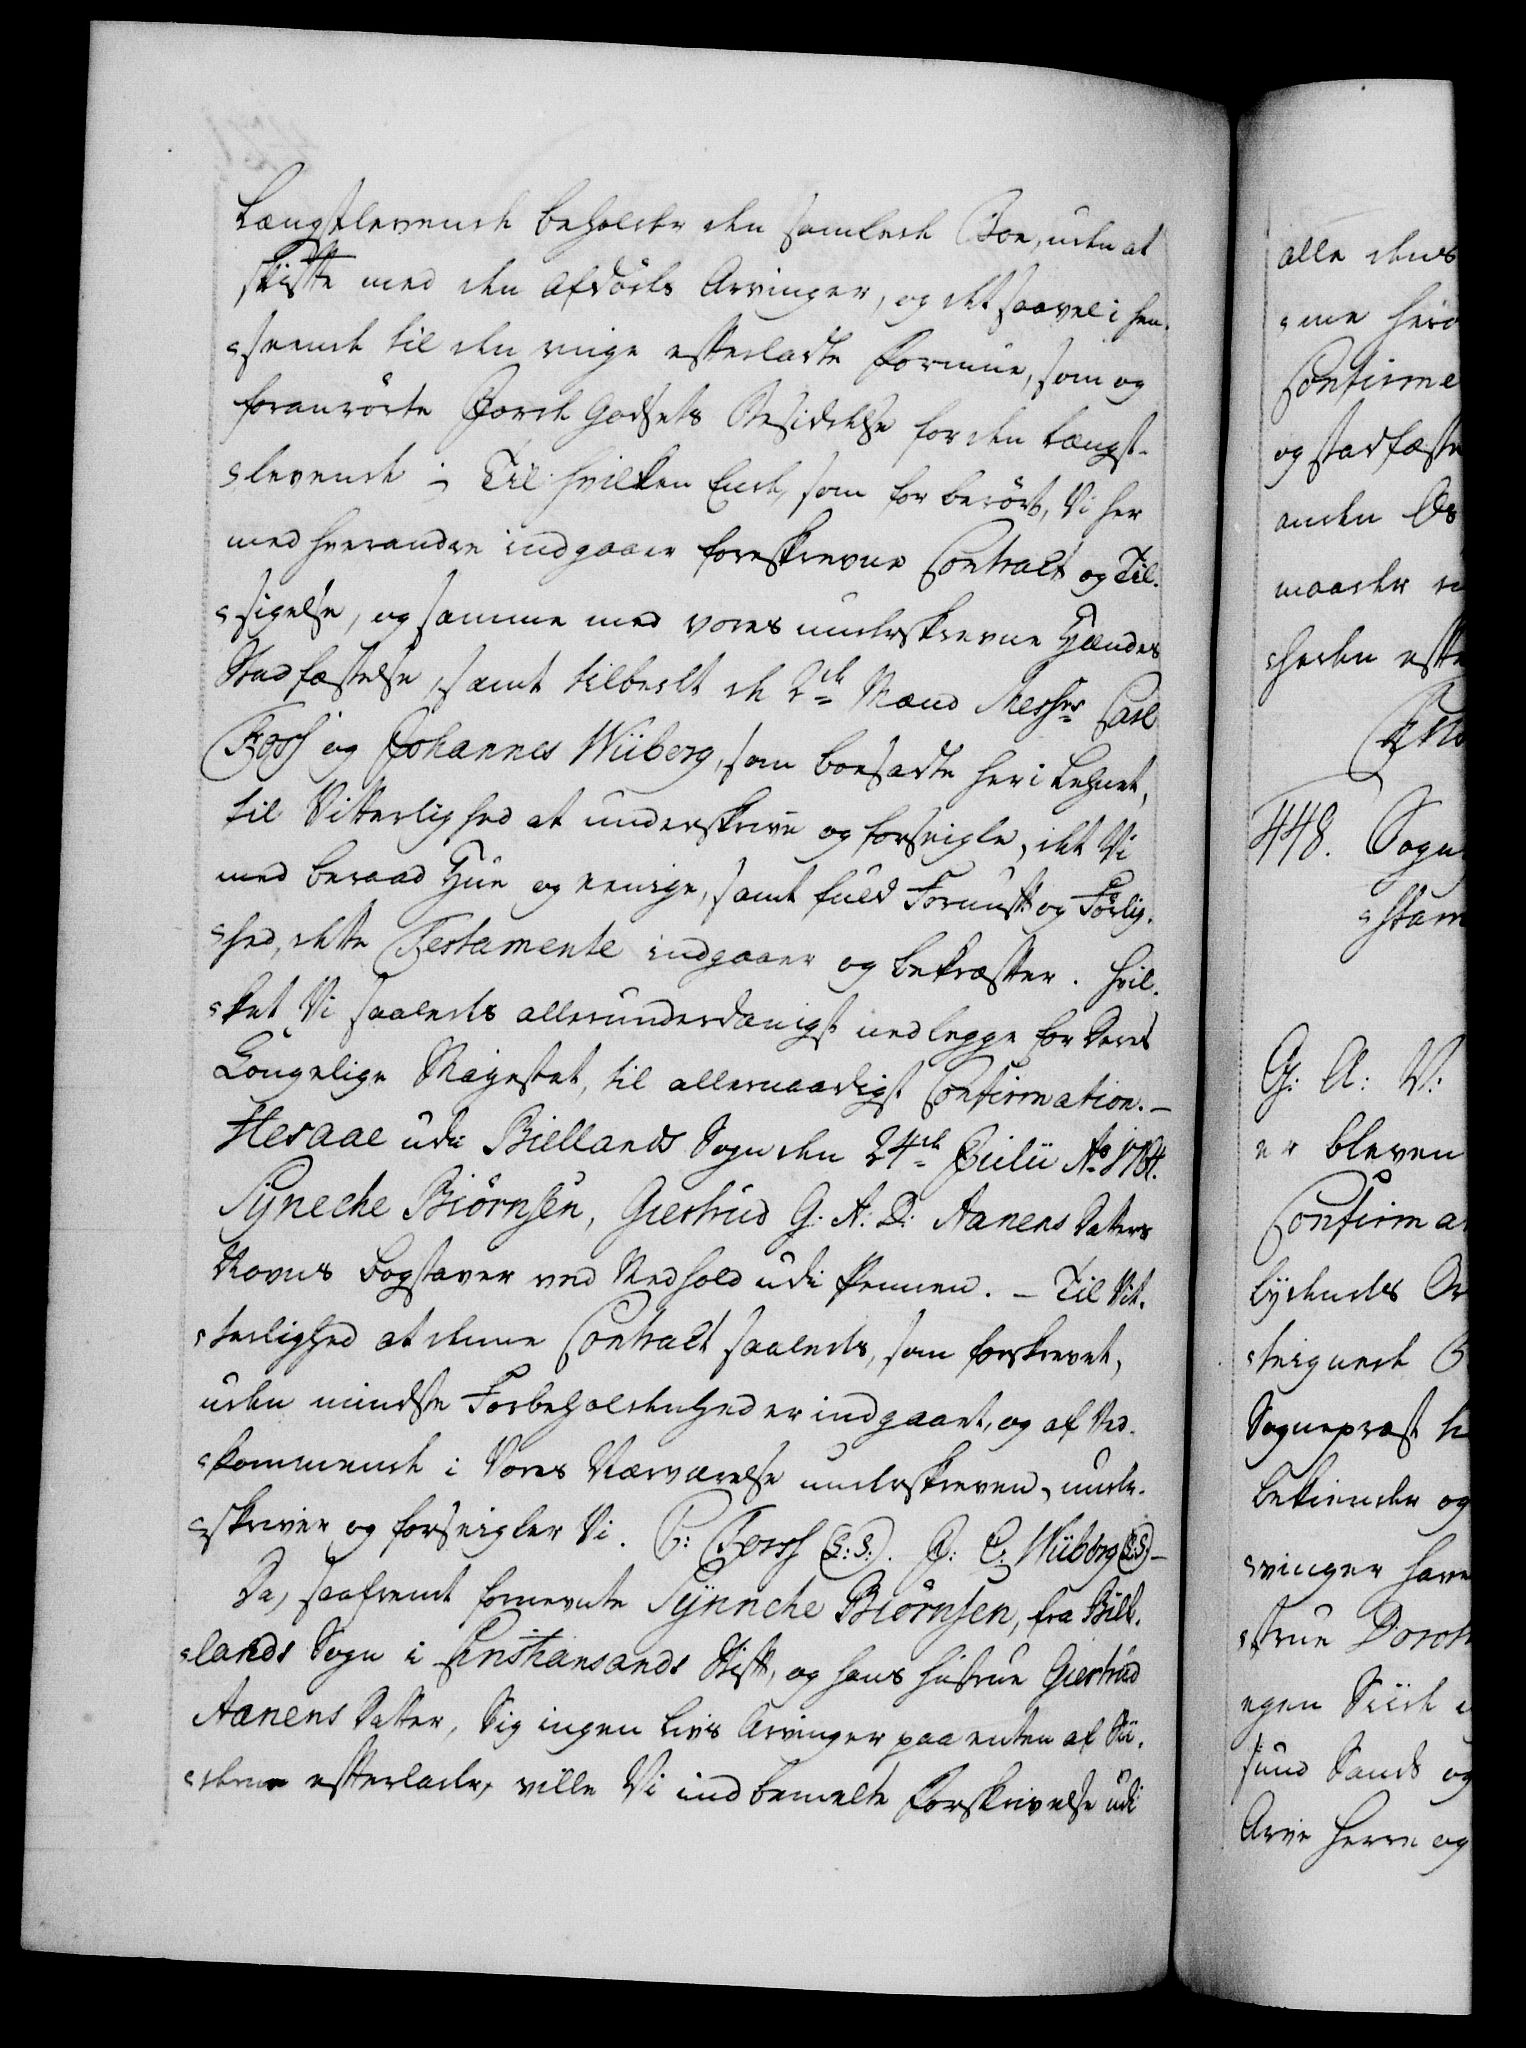 Længstlevende beholder den samlede Boe, uden at
skifte med den afdödes Arvinger, og det saavel i hen-
seende til den ringe efterladte Formue, som og
foranrörte Jorde Godsets Besiddelse for den Længst-
levende ; Til hvilken Ende, som for berört, Vi her
med hverandre indgaaer foreskrevne Contract og Til-
sigelse, og samme med vores underskrevne Hænders
Stadfæstelse, samt tilbedt de 2de Mænd Messrs Carl
Fossh og Johannes Wüberg, som boesadte her i Lehnet,
til Vitterlighed at underskrive og forseigle, det Vi
med beraad Hue og eenige, samt fuld Fornuft og Förlig-
hed, dette Testamente indgaaer og bekræfter. Hvil-
ket Vi saaledes allerunderdanigst nedlegge for Deres
Kongelige Majestet, til allernaadigst Confirmation.-
Hesaae udi Biellands Sogn den 24de Julii Ao 1764.
Syneche Biörnsen, Giertrud G: A: D: Aanens Datters
Navns Bogstaver ved Medhold udi Pennen. - Til Vit-
terlighed at denne Contract saaledes, som forskrevet,
uden mindste Forbeholdenhed er indgaaet, og af Ved-
kommende i Vores Nærværelse underskreven, under-
skriver og forseigler Vi. C: Fossh (L:S:). J: C: Wüberg (L:S:)-
Da, saafremt fornevnte Synnche Biörnsen, fra Biel-
lands Sogn i Christiansands Stift, og hans Hustrue Giertrud
Aanens Datter, Sig ingen Livs Arvinger paa enten af Sii-
derne efterlader, ville Vi ind bemelte Forskrivelse udi
alle dens
me her
Confirme
og stadfæste
anden
maader
heden efte
448. Sogn
stam
G: A: V:
er bleven
Confirmat
lydendes
teignede
Sognepræst
bekiender og
vinger have
strue Doroth
egen Siide
sund Sands og
Arve Herre og